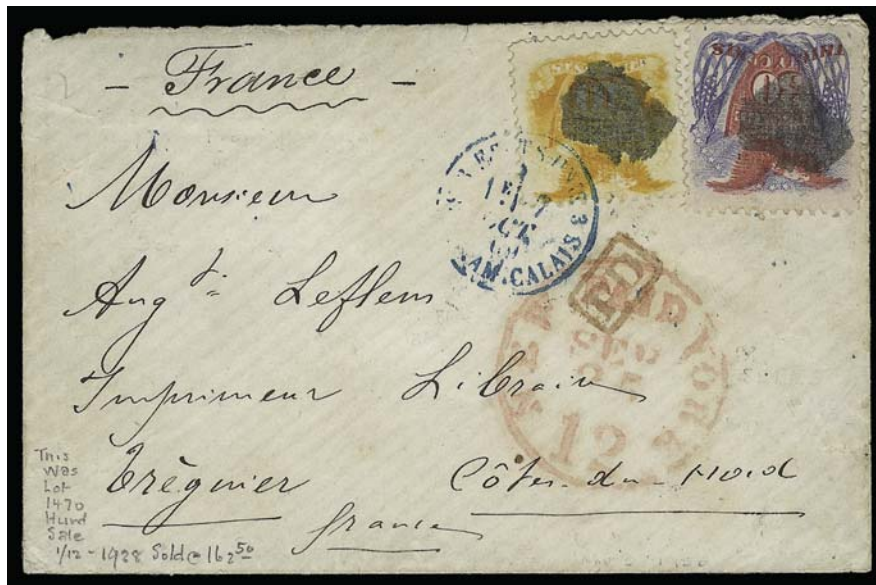 - France -
Monsieur
Augte Leflem
Imprimeur Libraire
Trèguier Côtes-du-Nord
france
AM.CALAIS 3
PD
NEW PAID YORK
SEP
12
This
was
Lot
1470
Hurd
Sale
1/12-1938 Sold @ 162.50